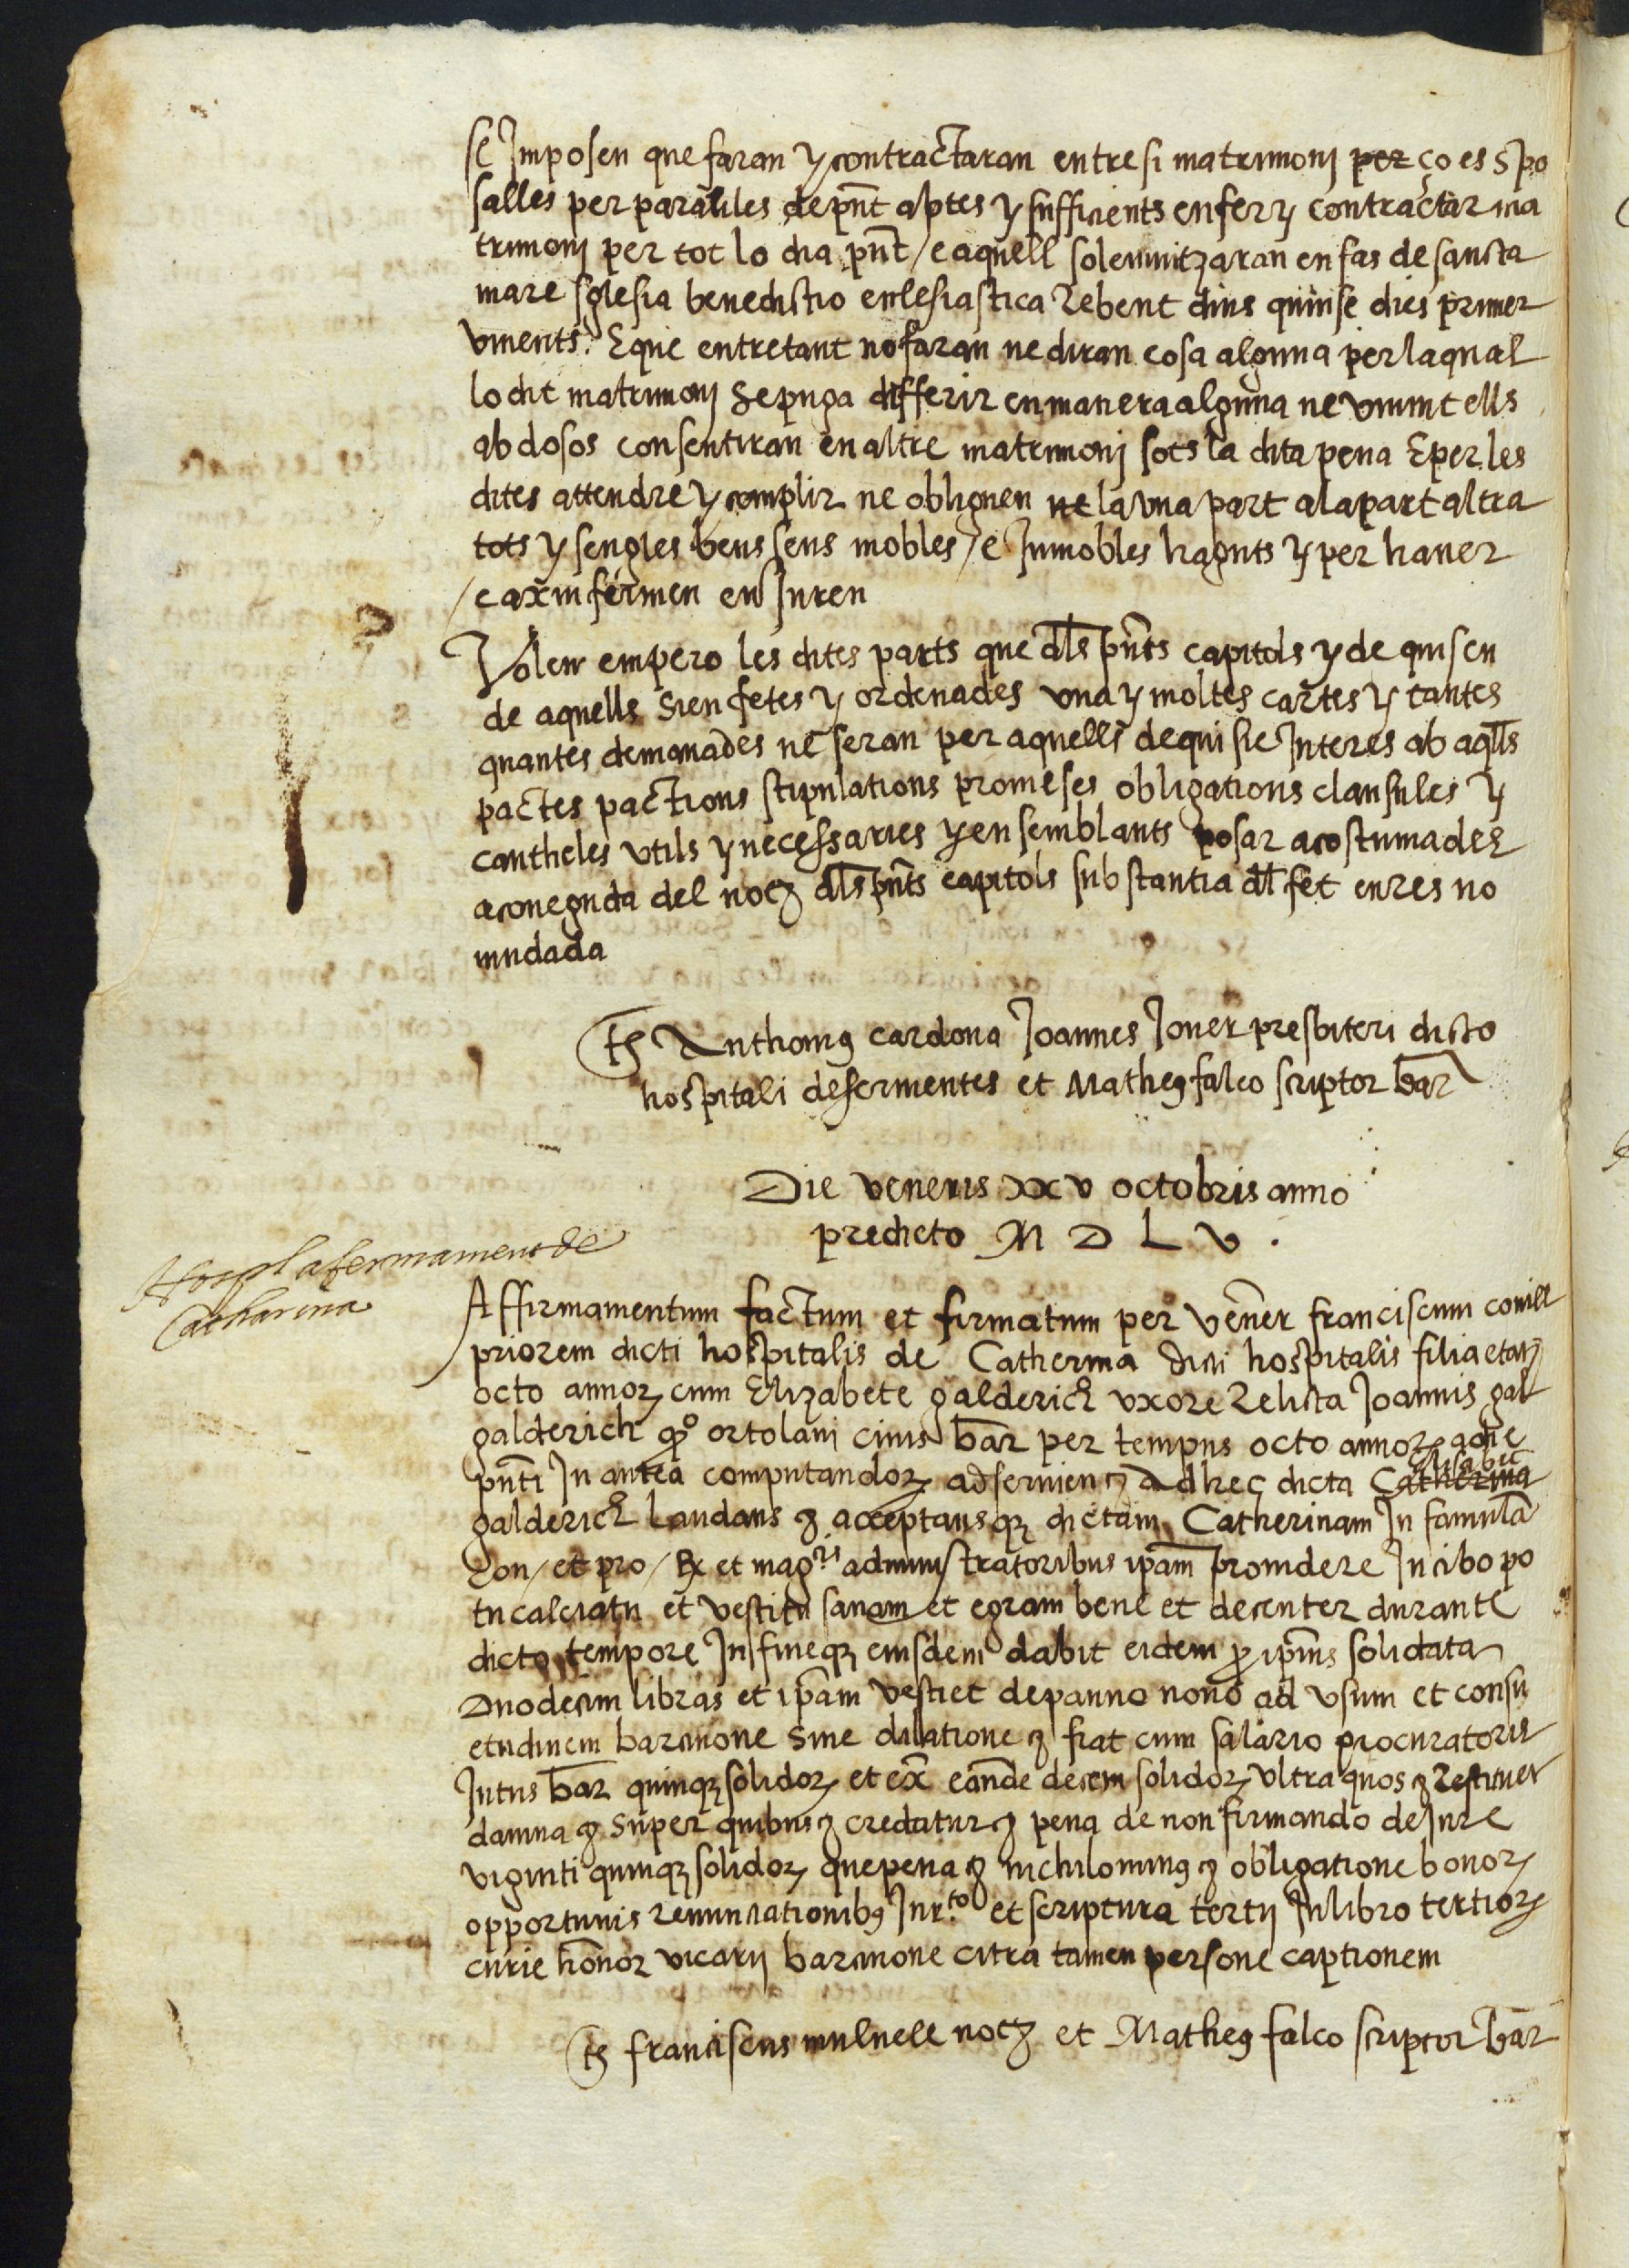 se Imposen que faran y contractaran entre si matrimonj per ço es spo
salles per paraules de pñt abtes y sufficients en fer y contractar ma
trimonj per tot lo dia pñt / e aquell solemnitzaran en fas de sancta
mare sglesia benedictio ecclesiastica Rebent dins quinse dies primer
vinents. E que entretant no faran ne diran cosa alguna per la qual
lo dit matrimonj se puga differir en manera alguna ne vinint ells
abdosos consentiran en altre matrimonj sots la dita pena E per les
dites attendre y complir ne obliguen ne la vna part a la part altra
tots y sengles bens sens mobles / e Inmobles haguts y per hauer
/ e axi u fermen e u Juren
Volen empero les dites parts que dls pñts capitols y de quiscu
de aquells sien fetes y ordenades vna y moltes cartes y tantes
quantes demanades ne seran per aquells de qui sie Interes ab aqlls
pactes pactions stipulations promeses obligations clausules y
cautheles vtils y necessaries y en semblants posar acostumades
a coneguda del notȝ dls pñts capitols substantia dl fet en res no
mudada
ts Anthoniꝰ cardona Joannes Jouer presbiteri dicto
hospitali deseruientes et Matheꝰ falco scriptor bar̄
Die veneris xxv octobris anno
predicto M D L v .
Hospl afermament de
Catharina
Affirmamentum factum et firmatum per vener̄ franciscum conill
priorem dicti hospitalis de Catherina dicti hospitalis filia etatȝ
octo annoꝝ cum Elizabete galderich vxore Relicta Joannis gal
galderich qº ortolani ciuis bar̄ per tempus octo annoꝝ a die
pñti In antea computandoꝝ ad seruienȝ Ad hec dicta Catherina
elizabet
galderich Laudans ȝ acceptansqȝ dictam Catherinam In famulā
Con / et pro / Rx et magᶜⁱˢ administratoribus ipam̄ prouidere In cibo po
tu calciatu et vestitu sanam et egram bene et decenter durante
dicto tempore In fineqȝ eiusdem dabit eidem ꝓ ipius̄ solidata
Duodecim libras et ipam̄ vestiet de panno nouo ad vsum et consu
etudinem barcinone sine dilatione ȝ fiat cum salario procuratoris
Intus bar̄ quinqȝ solidoꝝ et ex̄ eande decem solidoꝝ vltra quos ȝ Restituer
damna ȝ super quibus ȝ credatur ȝ pena de non firmando de Jure
viginti quinqȝ solidoꝝ que pena ȝ nichilominꝰ ȝ obligatione bonoꝝ
opportunis renunciationibꝰ Jur.to et scriptura tertij In libro tertioꝝ
curie honoꝝ vicarij barcinone citra tamen persone captionem
ts franciscus mulnell notȝ et Matheꝰ falco scriptor bar̄